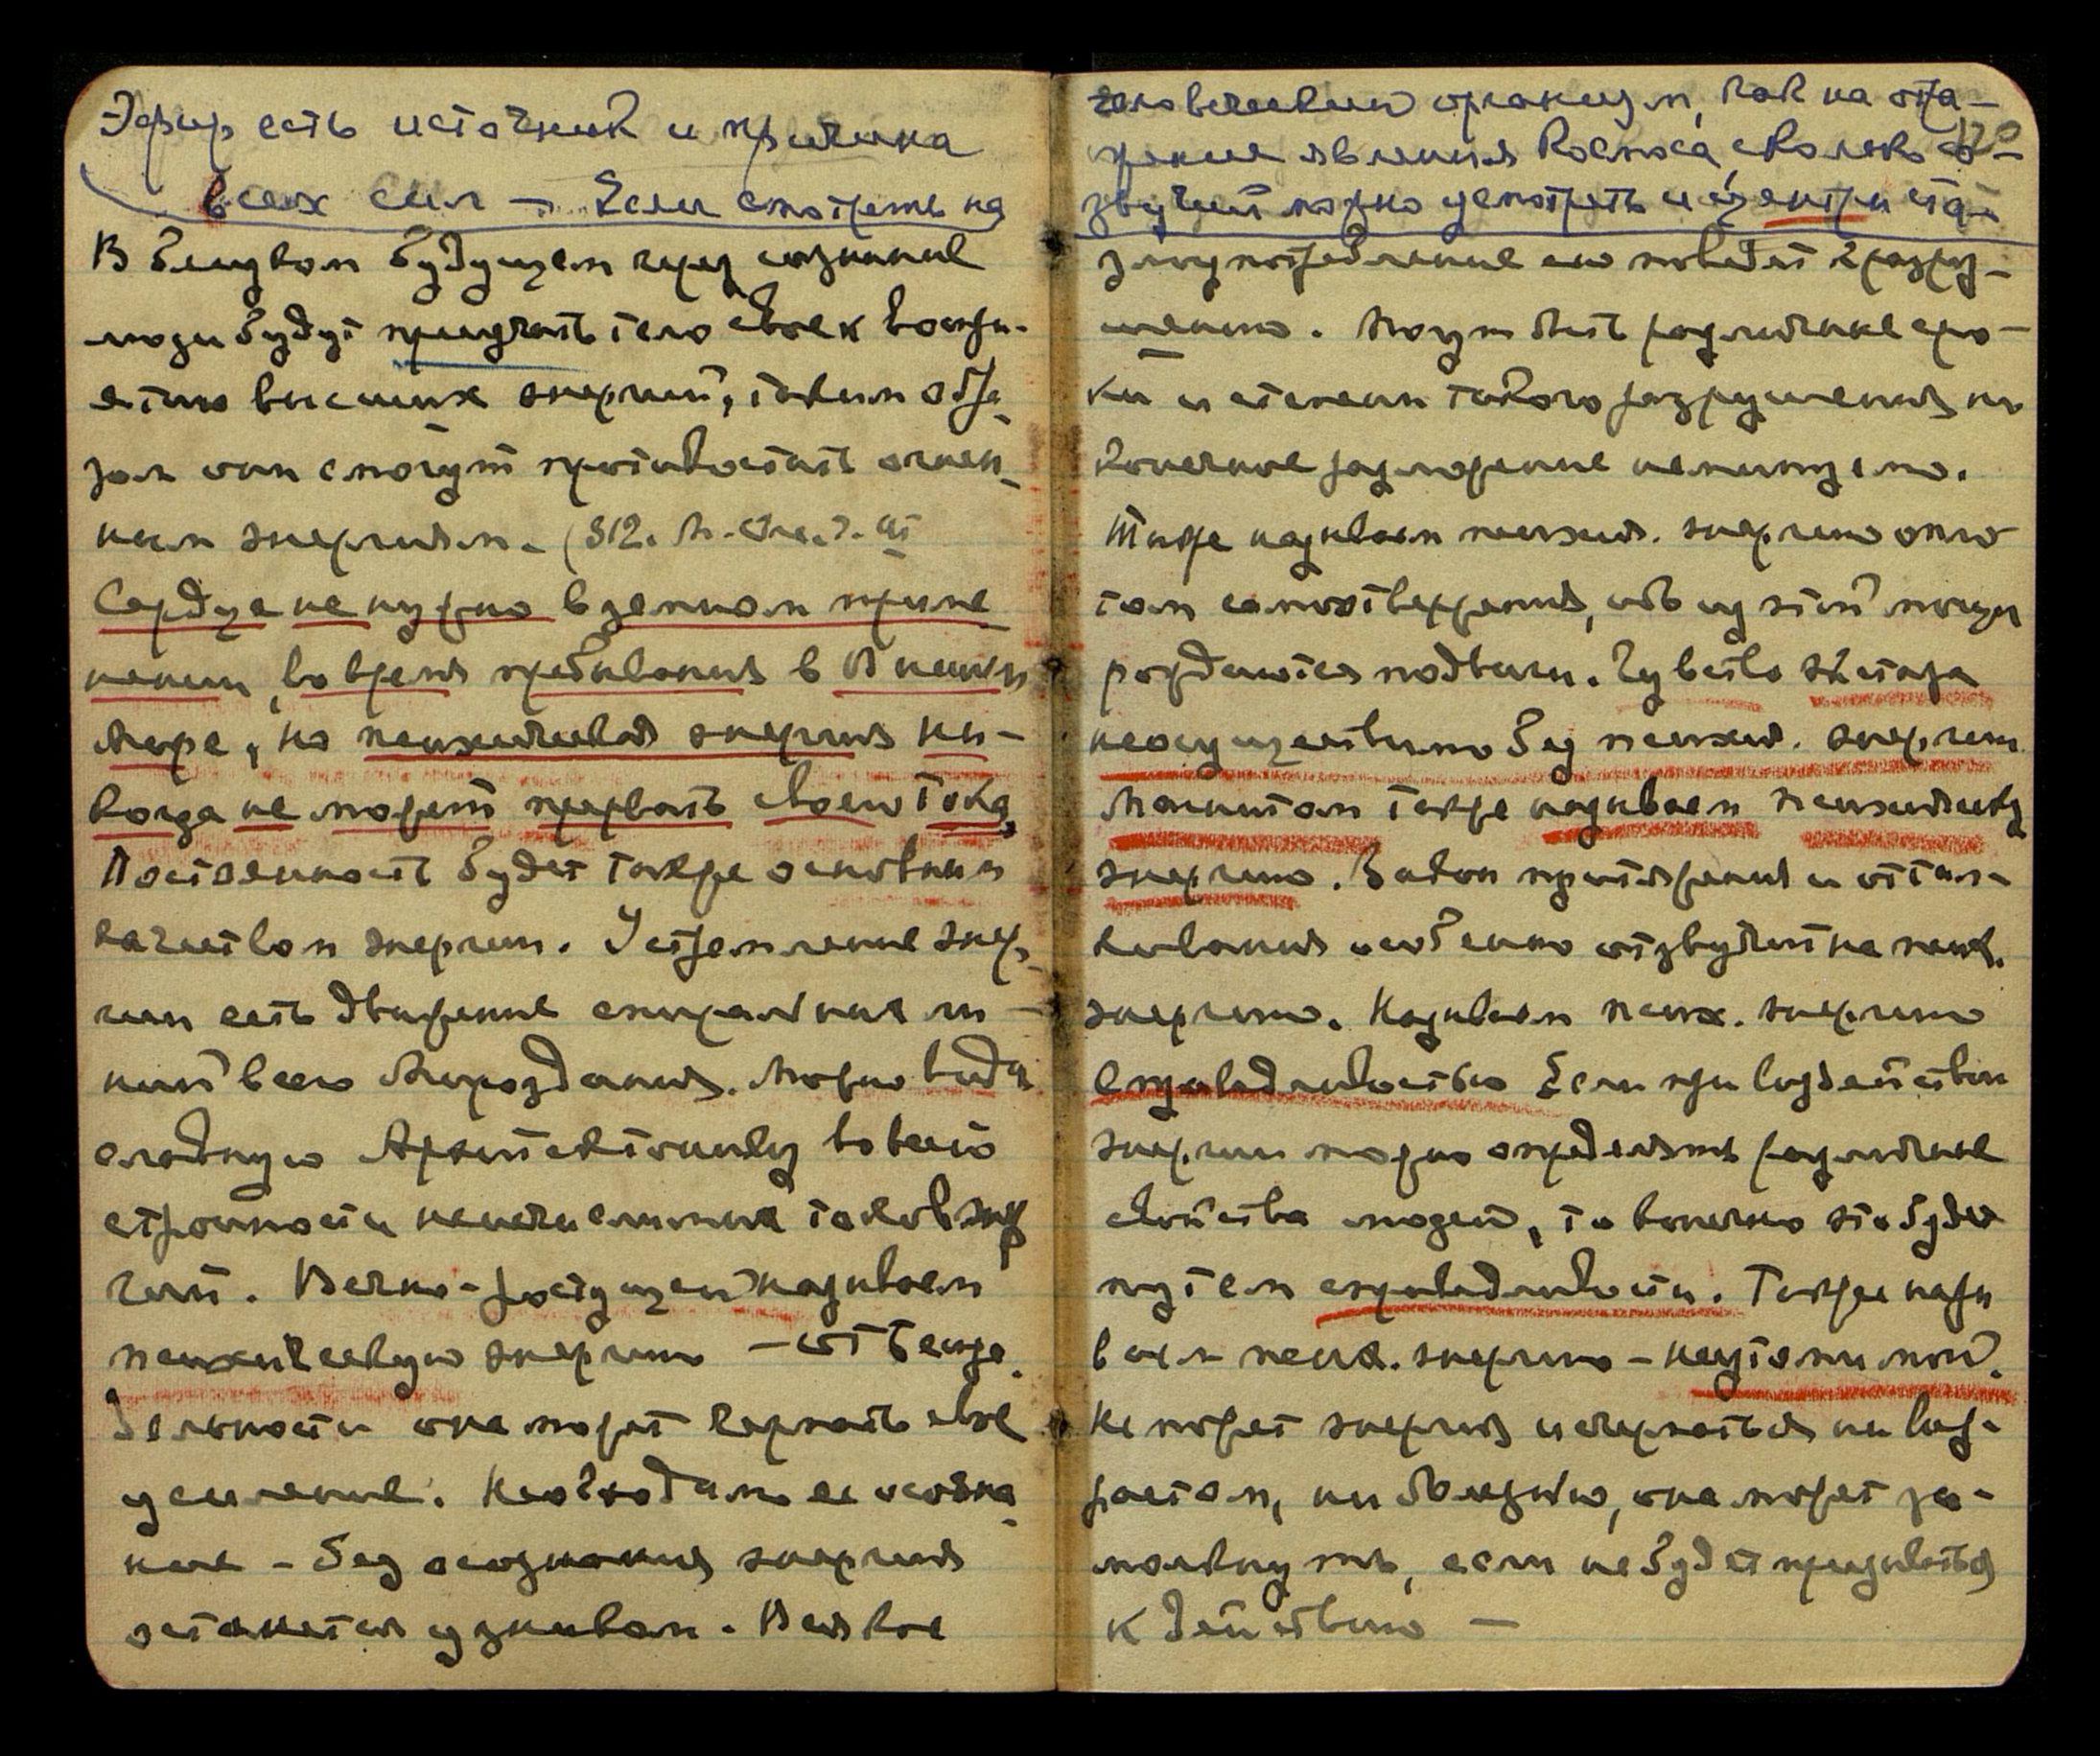 Эфир есть источник и причина
всех сил — Если смотреть на
В близком будущем через сознание
люди будут приучать тело свое к воспри-
ятию высших энергий, таким обра-
зом они смогут противостать огнен-
ным энергиям. (312. М. Ог. ч. III
Сердце не нужно в земном приме
нении, во время пребывания в Тонком
Мире, но психическая энергия ни-
когда не может прервать своего тока,
Постоянность будет также основным
качеством энергии. Устремление энер-
гии есть движение спиральных ли-
ний всего Мироздания. Можно
Архитектонику во всей
стройности неисчислимых токов энер
гий. Вечно-растущей называем
психическую энергию — от Беспре-
дельности она может черпать свое
усиление. Необходимо ее осозна-
ние — без осознания энергия
останется узником. Всякое
человеческий организм, как на отра-
жение явления Космоса, сколько со-
звучий можно усмотреть и центры
злоупотребление ею поведет к разру-
шению. Могут быть различные сро-
ки и степени такого разрушения но
конечное разложение неминуемо.
Также называем психич. энергию
том самоотвержения, ибо из этой мощи
рождаются подвиги. Чувство экстаза
неосуществимо без психич. энергии
Магнитом также называем психическую
энергию. Закон притяжения и оттал-
кивания особенно отзвучит на псих.
энергию. Называем псих. энергию
Справедливостью Если при воздействии
энергии можно определять различные
свойства людей, то конечно это будет
путем справедливости. Также назы
ваем псих. энергию — неутомимой.
Не может энергия исчерпаться ни воз-
растом, ни болезнью, она может за-
молкнуть, если не будет призываться
к действию —